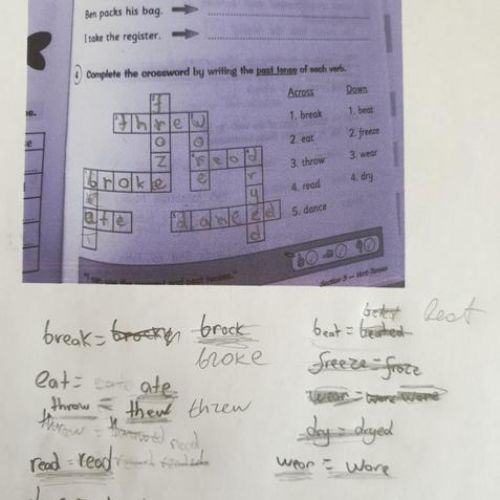 Ben packs his bag.
I take the register.
4 Complete the crossword by writing the past tense of each verb.
Across Down
1. break 1. beat
2. eat 2. freeze
3. throw 3. wear
4. read 4. dry
5. dance
threw
read
broke
ate
danced
Section 5 — Verb Tenses
break = brock
broke
beat = beated beat
eat = ate
freeze = froze
throw = thew threw
wear = wore wore
throw =
dry = dryed
read = read
wear = wore